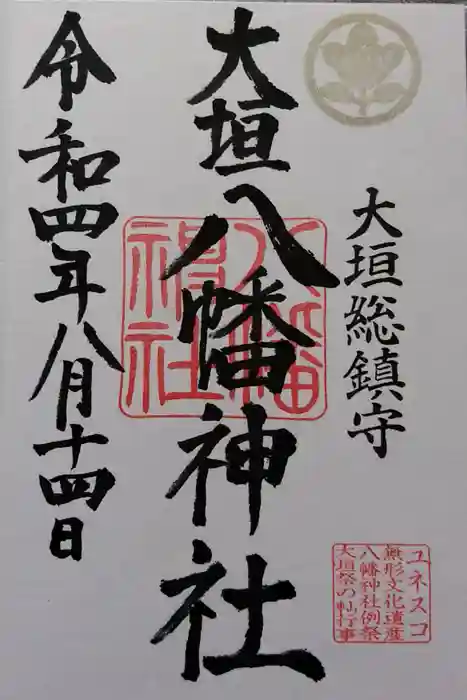 大垣総鎮守
大垣八幡神社
八幡
神社
令和四年八月十四日
ユネスコ
無形文化遺産
八幡神社例祭
大垣祭の軕行事